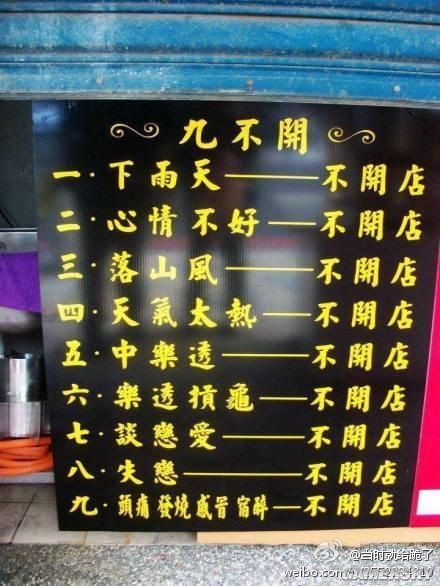 九不開
一·下雨天——不開店
二·心情不好—不開店
三·落山風——不開店
四·天氣太熱—不開店
五·中樂透——不開店
六·樂透摃龜—不開店
七·談戀愛——不開店
八·失戀———不開店
九·頭痛發燒感冒宿醉—不開店
@当时勃给跪了